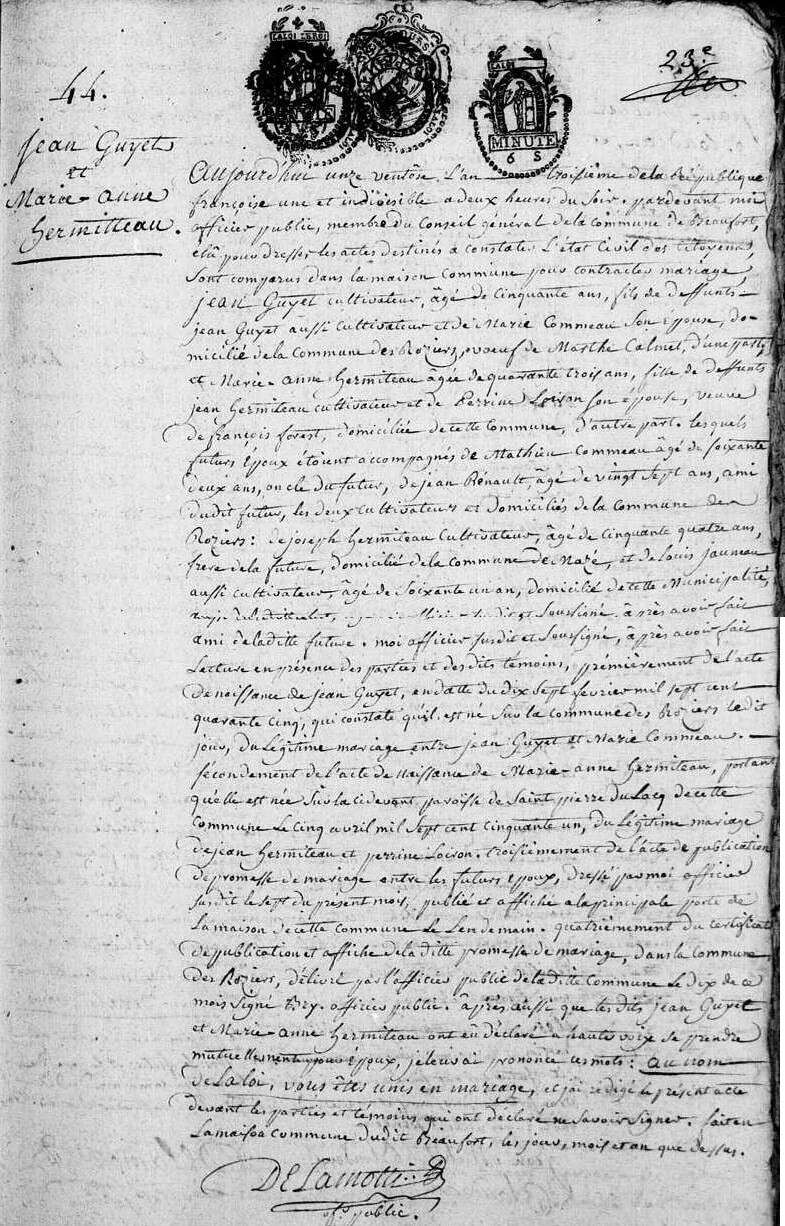 23e
44.
Jean Guyet
et
Marie-anne
hermitteau.
MINUTE
6 S
Aujourd'hui unze ventôse L'an troisième de la Republique
françoise une et indivisible a deux heures du Soir. pardevant moi
officier public, membre du Conseil général de la commune de Beaufort,
élû pour dresser les actes destinés à constater L'état Civil des Citoyens,
Sont comparus dans la maison Commune pour contracter mariage,
jean Guyet cultivateur, âgé de Cinquante ans, fils de deffunts
jean Guyet aussi Cultivateur et de Marie Commeau Son Epouse, do-
micilié de la Commune des Roziers, voeuf de Marthe Calmel, d'une part,
et Marie-anne hermiteau âgée de quarante trois ans, fille de deffunts
jean hermiteau cultivateur et de Perrine Loiron Son épouse, veuve
de françois forest, domiciliée de cette Commune, d'autre part. lesquels
futurs Epoux étoient accompagnés de Mathieu Commeau âgé de soixante
deux ans, oncle du futur, de jean Rénault, âgé de vingt Sept ans, ami
dudit futur, les deux Cultivateurs et domiciliés de la commune des
Roziers: de joseph hermiteau Cultivateur, âgé de Cinquante quatre ans,
frere de la future, domicilié de la commune de Mazé, et de Louis jauneau
aussi cultivateur, âgé de Soixante un an, domicilié de cette Municipalité,
ami de laditte future. moi officier susdit et Soussigné, après avoir fait
Lecture en présence des parties et des dits témoins, prémièrement de l'acte
de naissance de jean Guyet, en datte du dix Sept février mil sept cent
quarante cinq, qui constate qu'il est né Sur la commune des Roziers ledit
jour, du Légitime mariage entre jean Guyet et Marie Commeau.
sécondement de l'acte de naissance de Marie-anne hermiteau, portant
qu'elle est née Sur la cidevant paroisse de Saint pierre du Lacq de cette
Commune Le Cinq avril mil Sept cent cinquante un, du Légitime mariage
de jean hermiteau et perrine Loiron. troisièmement de l'acte de publication
de promesse de mariage entre les futurs Epoux, dressé par moi officier
susdit le sept du présent mois, publié et affiché a la principale porte de
La maison de cette commune Le Lendemain. quatrièmement du certificat
de publication et affiche de la ditte promesse de mariage, dans la Commune
des Roziers, délivré par l'officier public de la dite Commune Le dix de ce
mois signé officier public. après aussi que les dits jean Guyet
et Marie-anne hermiteau ont eû déclaré a haute voix se prendre
mutuellement pour Epoux, je leur ai prononcé ces mots: au nom
de la loi, vous êtes unis en mariage, et j'ai rédigé le présent acte
devant les parties et témoins qui ont déclaré ne Savoir Signer. fait en
La maison Commune dudit Beaufort, les jour, mois et an que dessus.
DELamotte
off. public.